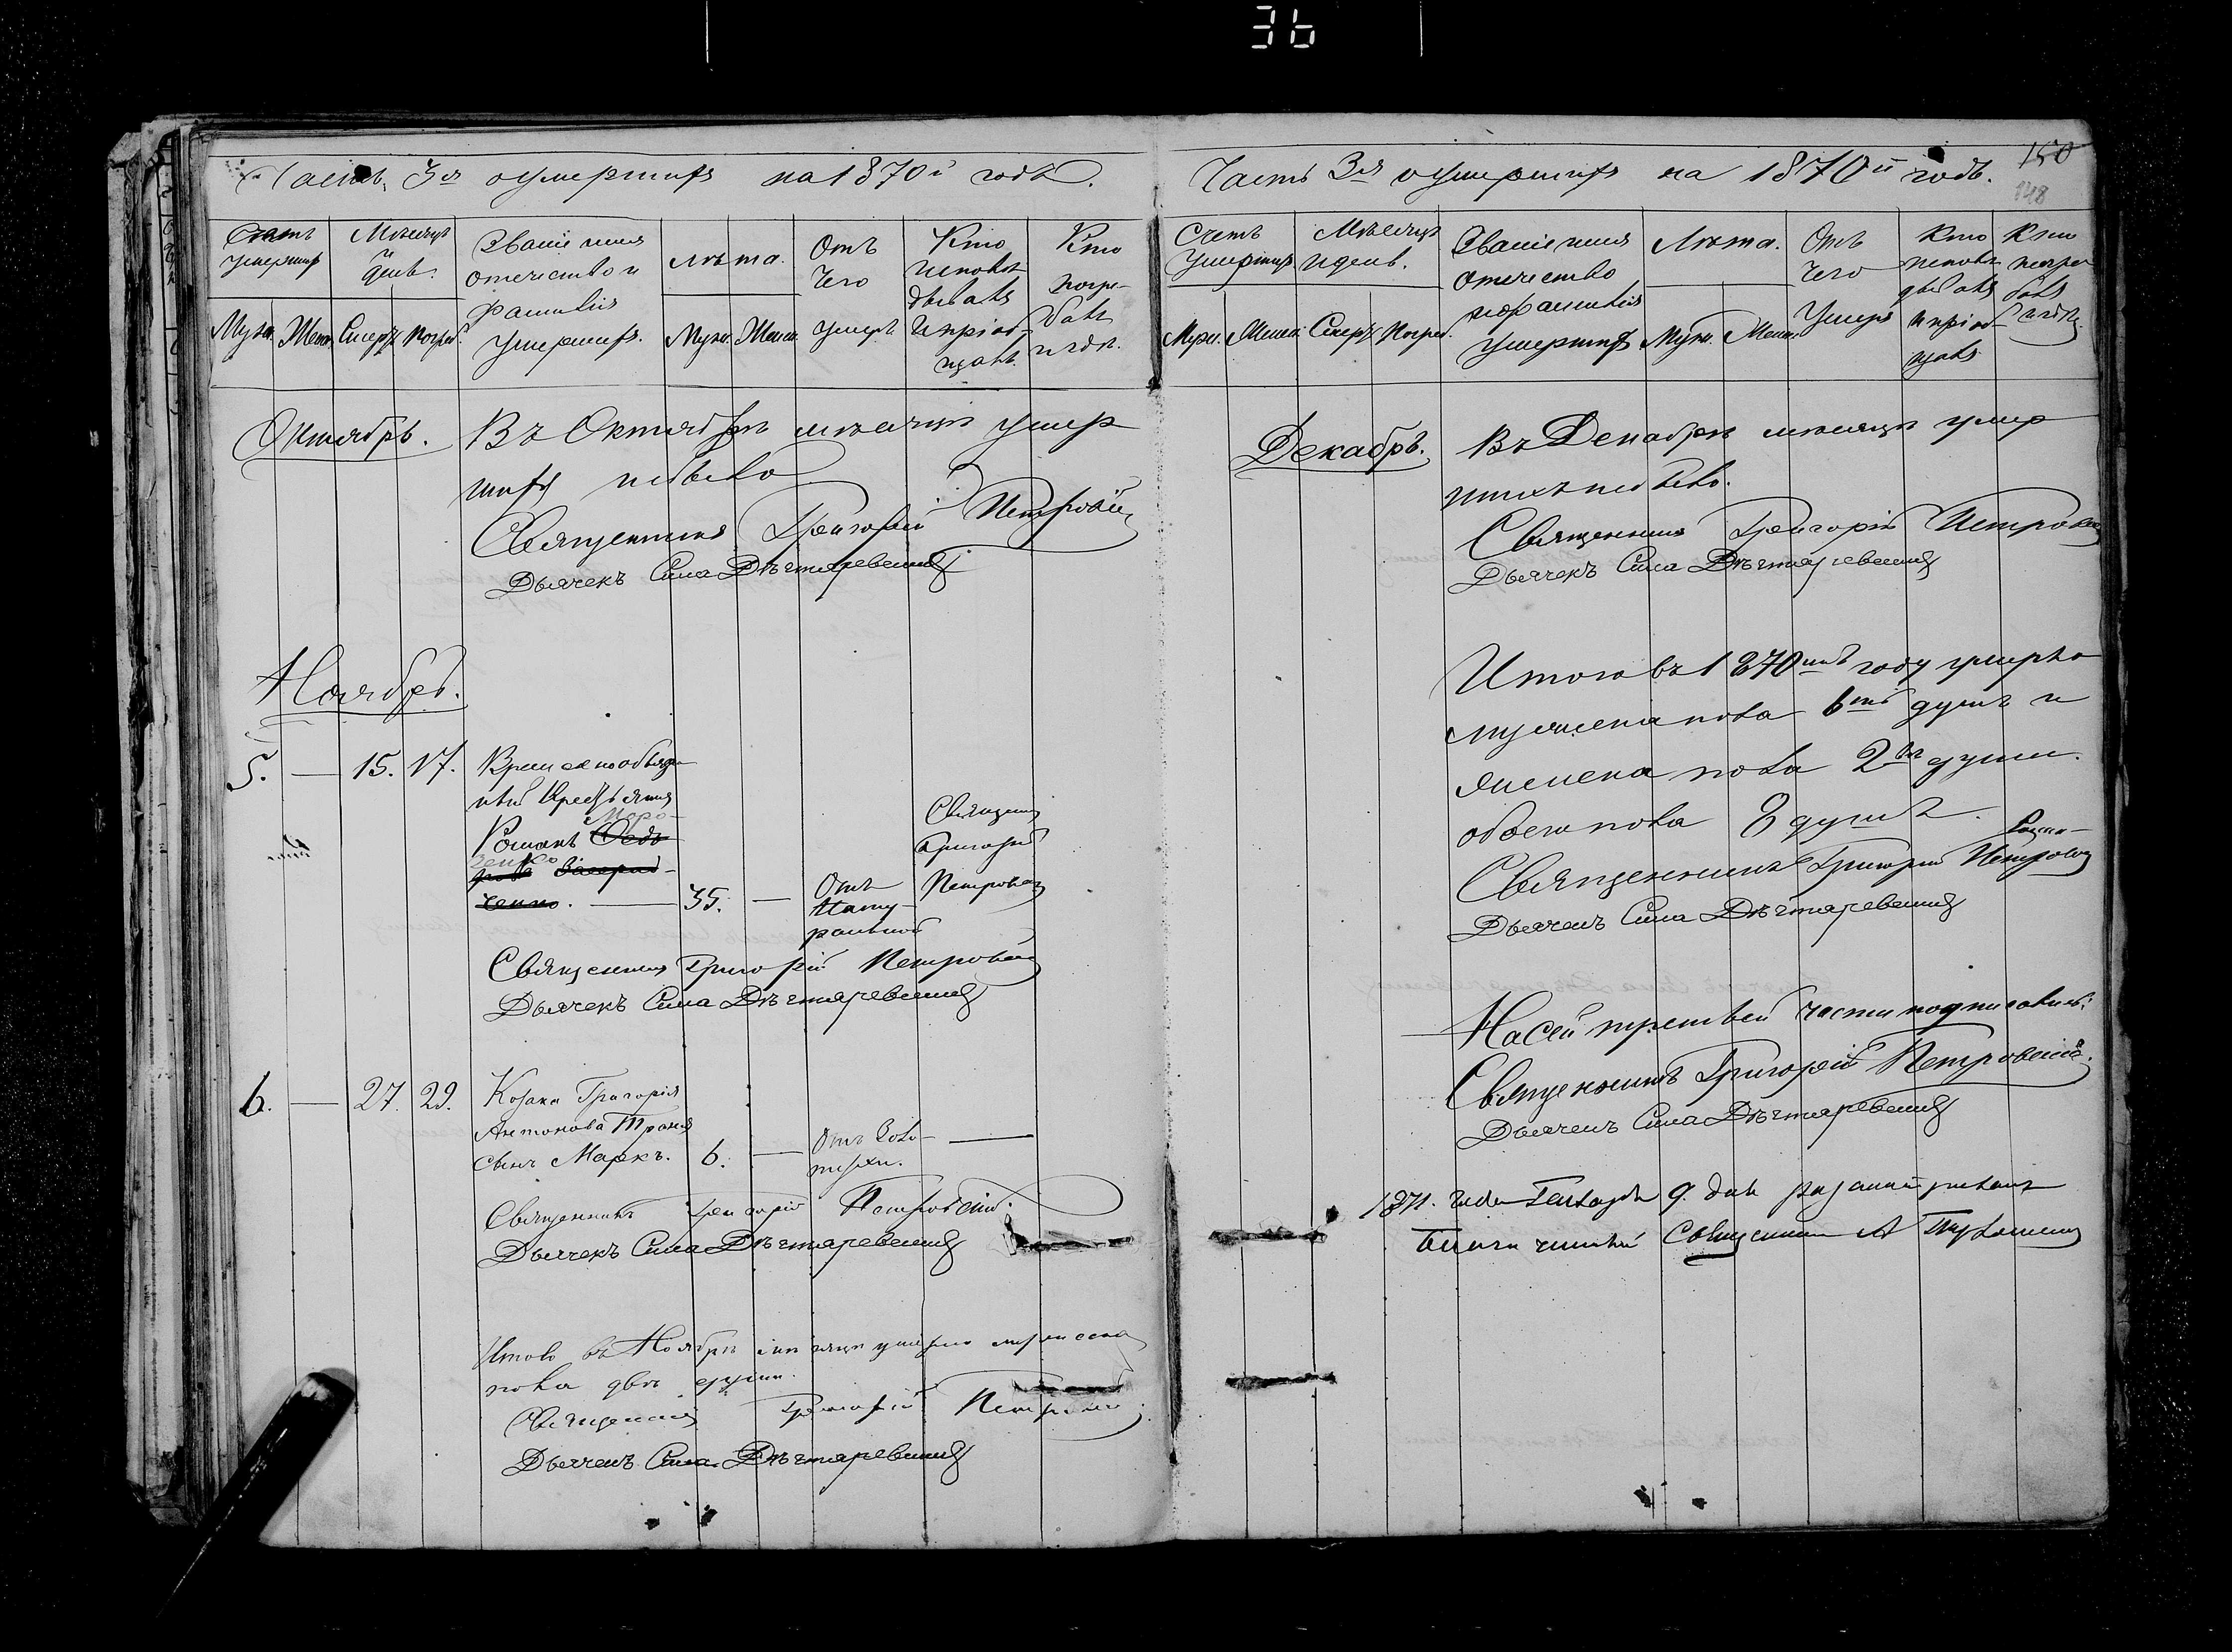 36
Часть 3я о умершихъ на 1870й годъ.
Счетъ умершихъ
Мѣсяцъ и день.
Званіе имя отечество и фамилія умершихъ.
Лѣта.
Отъ чего умеръ
Кто исповѣдывалъ и пріобщалъ.
Кто погребалъ и гдѣ.
Муж. Жен. Смерт. Погреб.
Муж. Жен.
Октябрь.
Въ Октябрѣ мѣсяцѣ умер
шихъ небыло
Священникъ Григорій Петровскій
Дьячекъ Сила Дѣхтяревскій
Ноябрь.
5. — 15. 17. Временнообязан
ный Крестьянинъ
Меро-
Романъ Ѳедо
зенко
рова
ченко. — 35. —
Отъ
Нату-
ральной
Священникъ
Григорій
Петровскій
Священникъ Григорій Петровскій
Дьячекъ Сила Дѣхтяревскій
6. — 27. 29. Козака Григорія
Антонова
сынъ Маркъ. 6. — Отъ Золо- —
тухи.
Священникъ Григорій Петровскій.
Дьячекъ Сила Дѣхтяревскій
Итого въ Ноябрѣ мѣсяцѣ умерло мужеска
пола двѣ души.
Священникъ Григорій Петровскій
Дьячекъ Сила Дѣхтяревскій
150
148
Часть 3я о умершихъ на 1870й годъ.
Счетъ умершихъ
Мѣсяцъ и день.
Званіе имя отечество и фамилія умершихъ
Лѣта.
Отъ чего умеръ
Кто исповѣдывалъ и пріобщалъ
Кто погребалъ и гдѣ.
Муж. Женск. Смерт. Погреб.
Муж. Жен.
Декабрь.
Въ Декабрѣ мѣсяцѣ умер
шихъ небыло.
Священникъ Григорій Петровскій
Дьячекъ Сила Дѣхтяревскій
Итого въ 1870мъ году умерло
мужеска пола 6ть душъ и
женска пола 2вѣ души.
обоего пола 8 душъ.
Священникъ Григорій Петровскій
Дьячекъ Сила Дѣхтяревскій
На сей третьей части подписались:
Священникъ Григорій Петровскій.
Дьячекъ Сила Дѣхтяревскій
1871. года Генваря 9. дня
Благочинный Священникъ